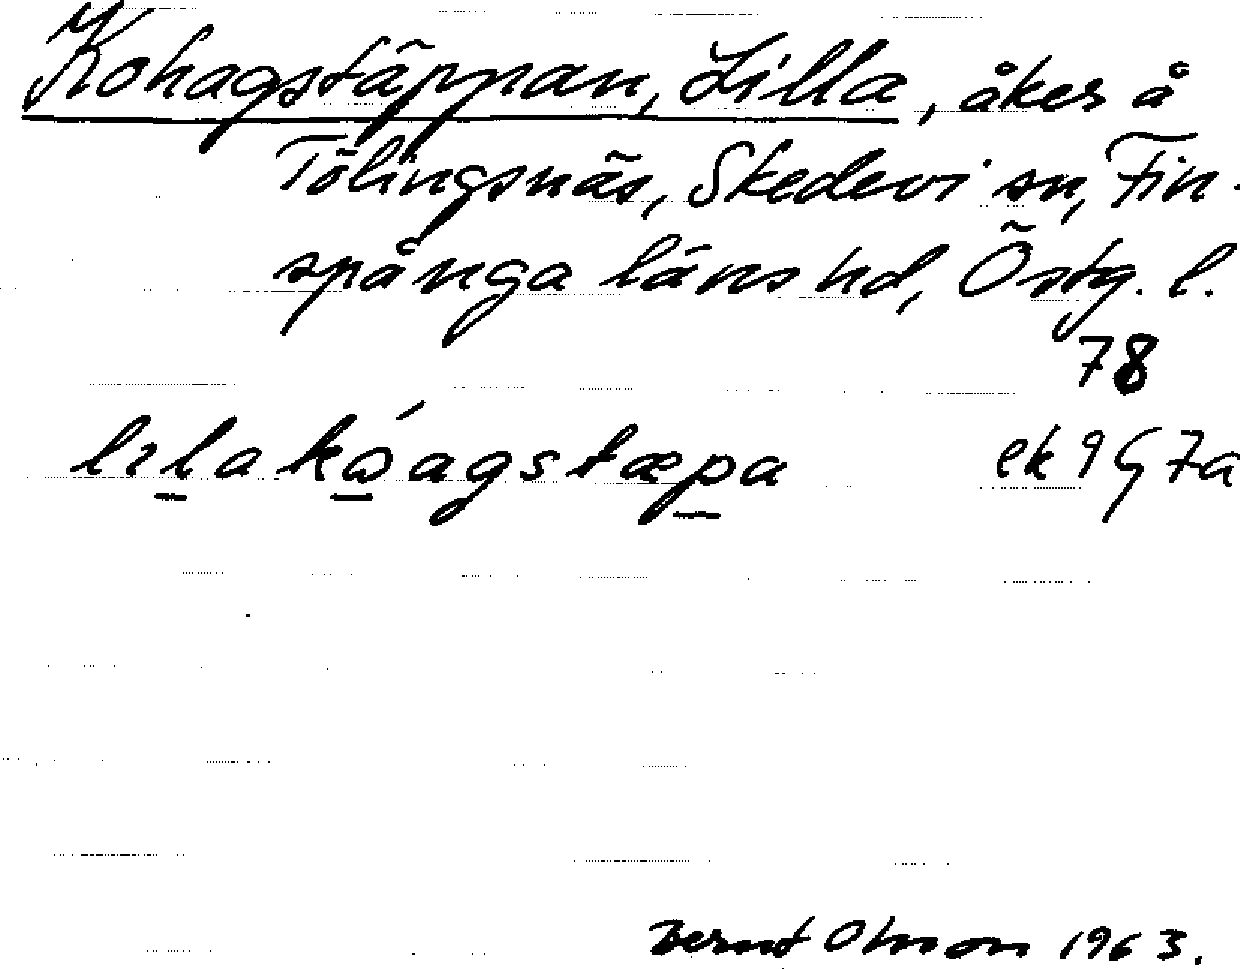 Kohagstäppan, Lilla, åker å
Tölingsnäs, Skedevi sn, Fin-
spånga läns hd, Östg. l.
78
lıla kọ́agstæpa ek 9G7a
Bernt Olsson 1963.